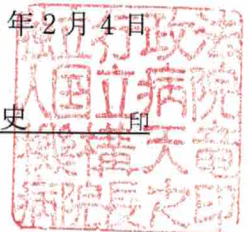 年2月4日
史 印
独立行政法
人国立病院
機構天竜
病院長之印